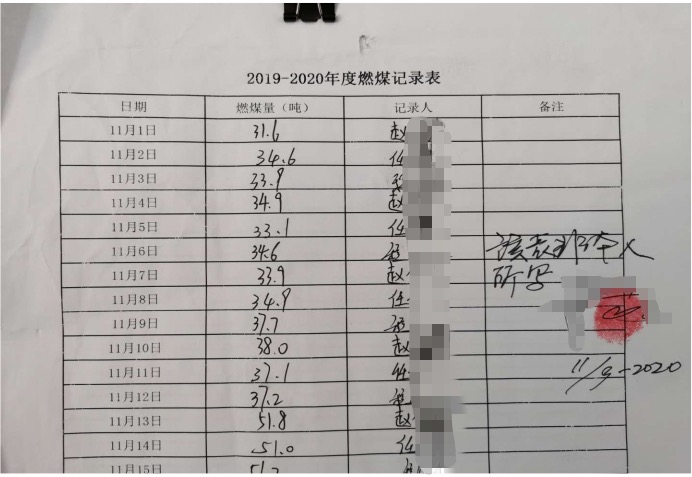 2019-2020年度燃煤记录表
日期 燃煤量（吨） 记录人 备注
11月1日 31.6 赵
11月2日 34.6 任
11月3日 33.9
11月4日 34.9 赵
11月5日 33.1 任
11月6日 34.6
11月7日 33.9 赵
11月8日 34.9 任
11月9日 37.7
11月10日 38.0 赵
11月11日 37.1 任
11月12日 37.2
11月13日 51.8 赵
11月14日 51.0 任
11月15日
该表非本人
所写
11/9-2020